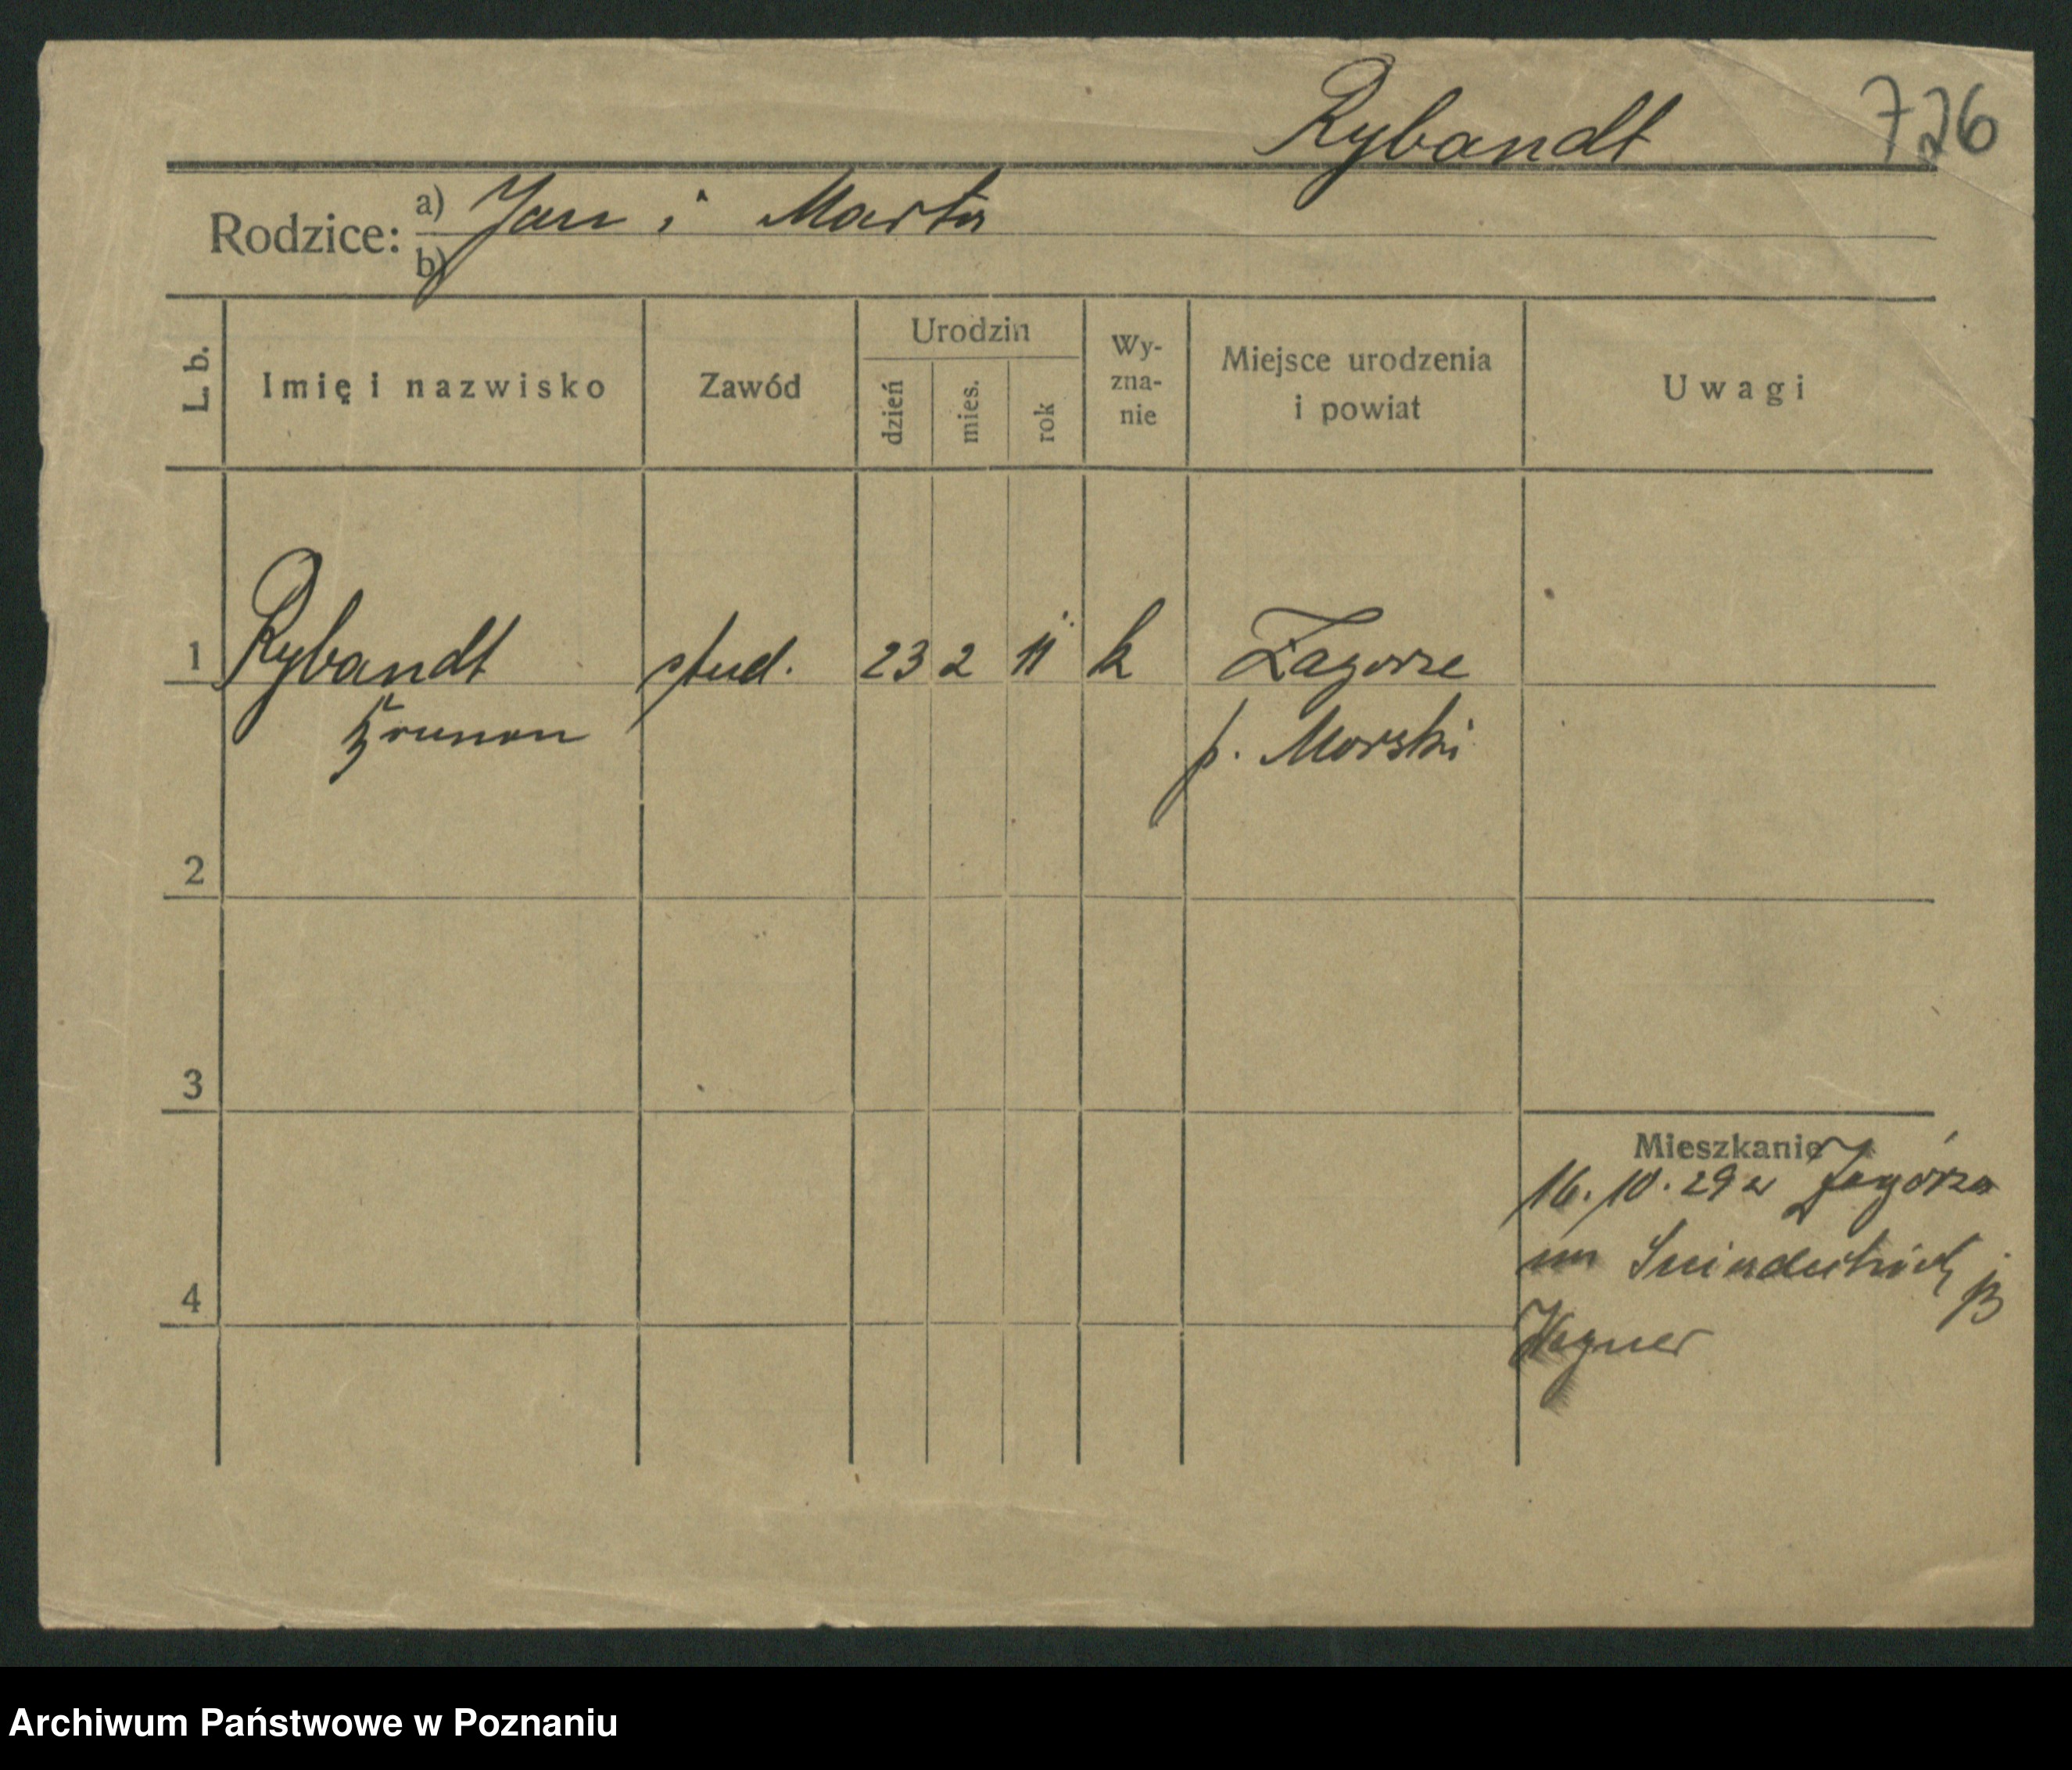 Rybandt 726
Rodzice: a) Jan i Marta
b)
L. b. Imię i nazwisko Zawód Urodzin dzień mies. rok Wy-zna-nie Miejsce urodzenia i powiat Uwagi
1 Rybandt stud. 23 2 11 k Zagorze
Brunon p. Morski
2
3
Mieszkanie
16. 10. 29 z Zagórza
na Śniadeckich
4
Wegner
Archiwum Państwowe w Poznaniu